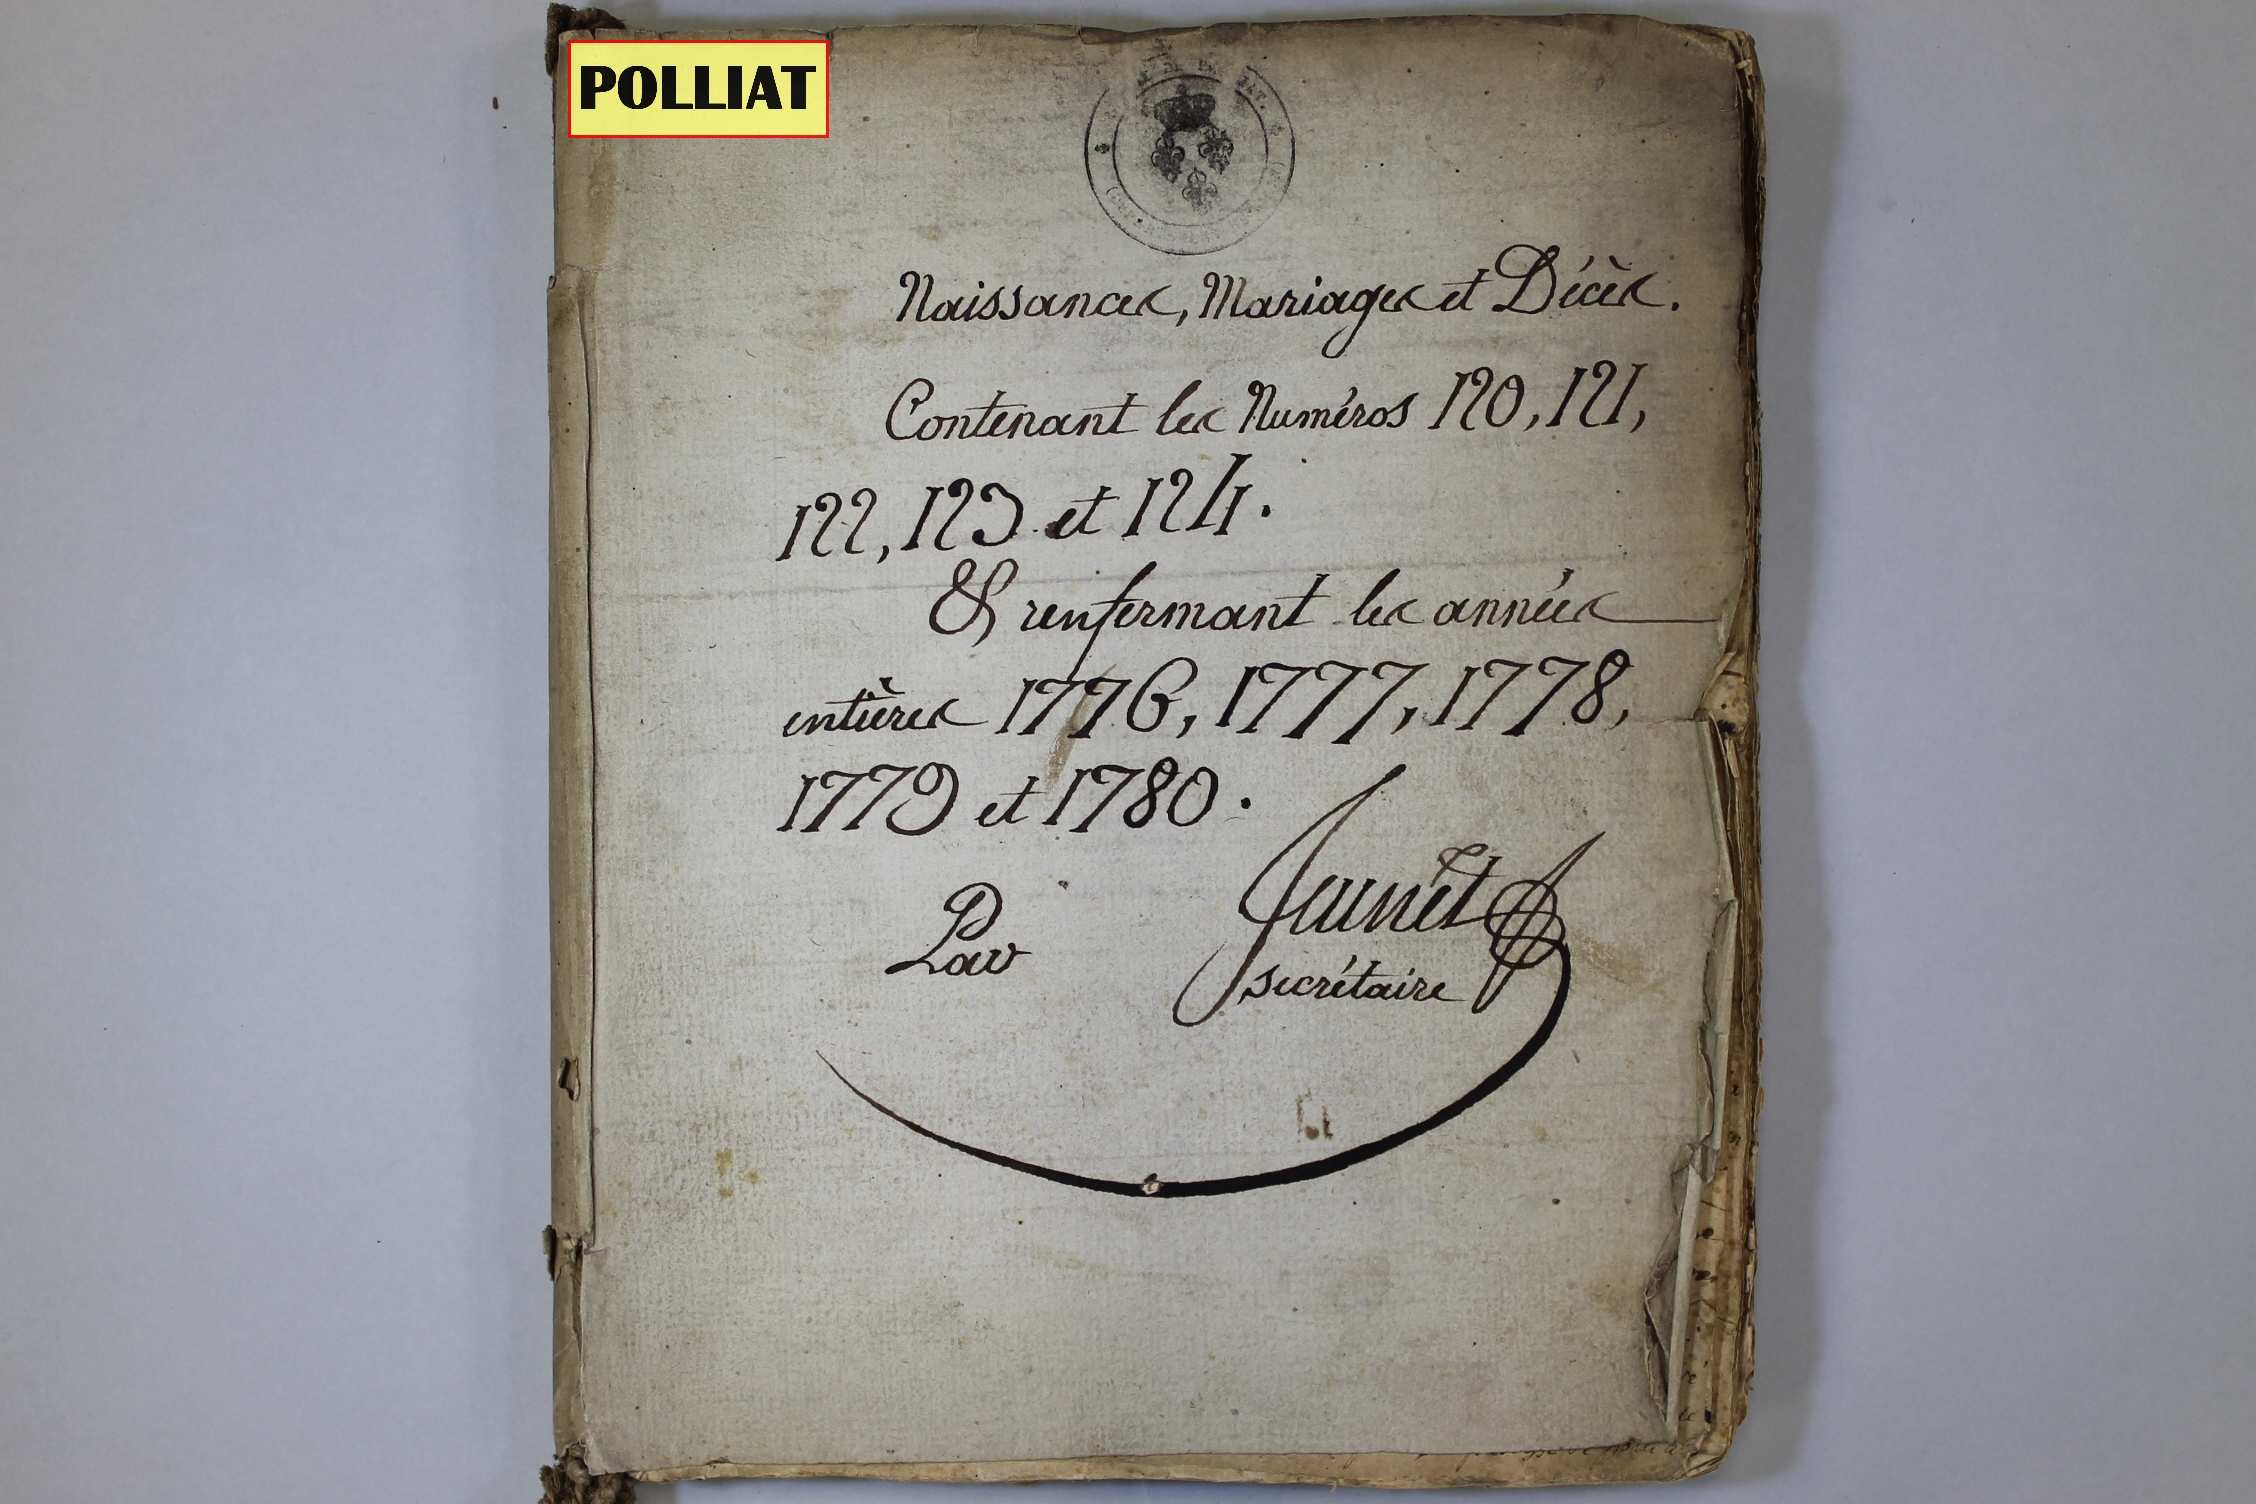 POLLIAT
Naissances, Mariages et Décès.
Contenant les Numéros 120, 121,
122, 123 et 124.
& renfermant les années
entières 1776, 1777, 1778,
1779 et 1780.
Par
secrétaire